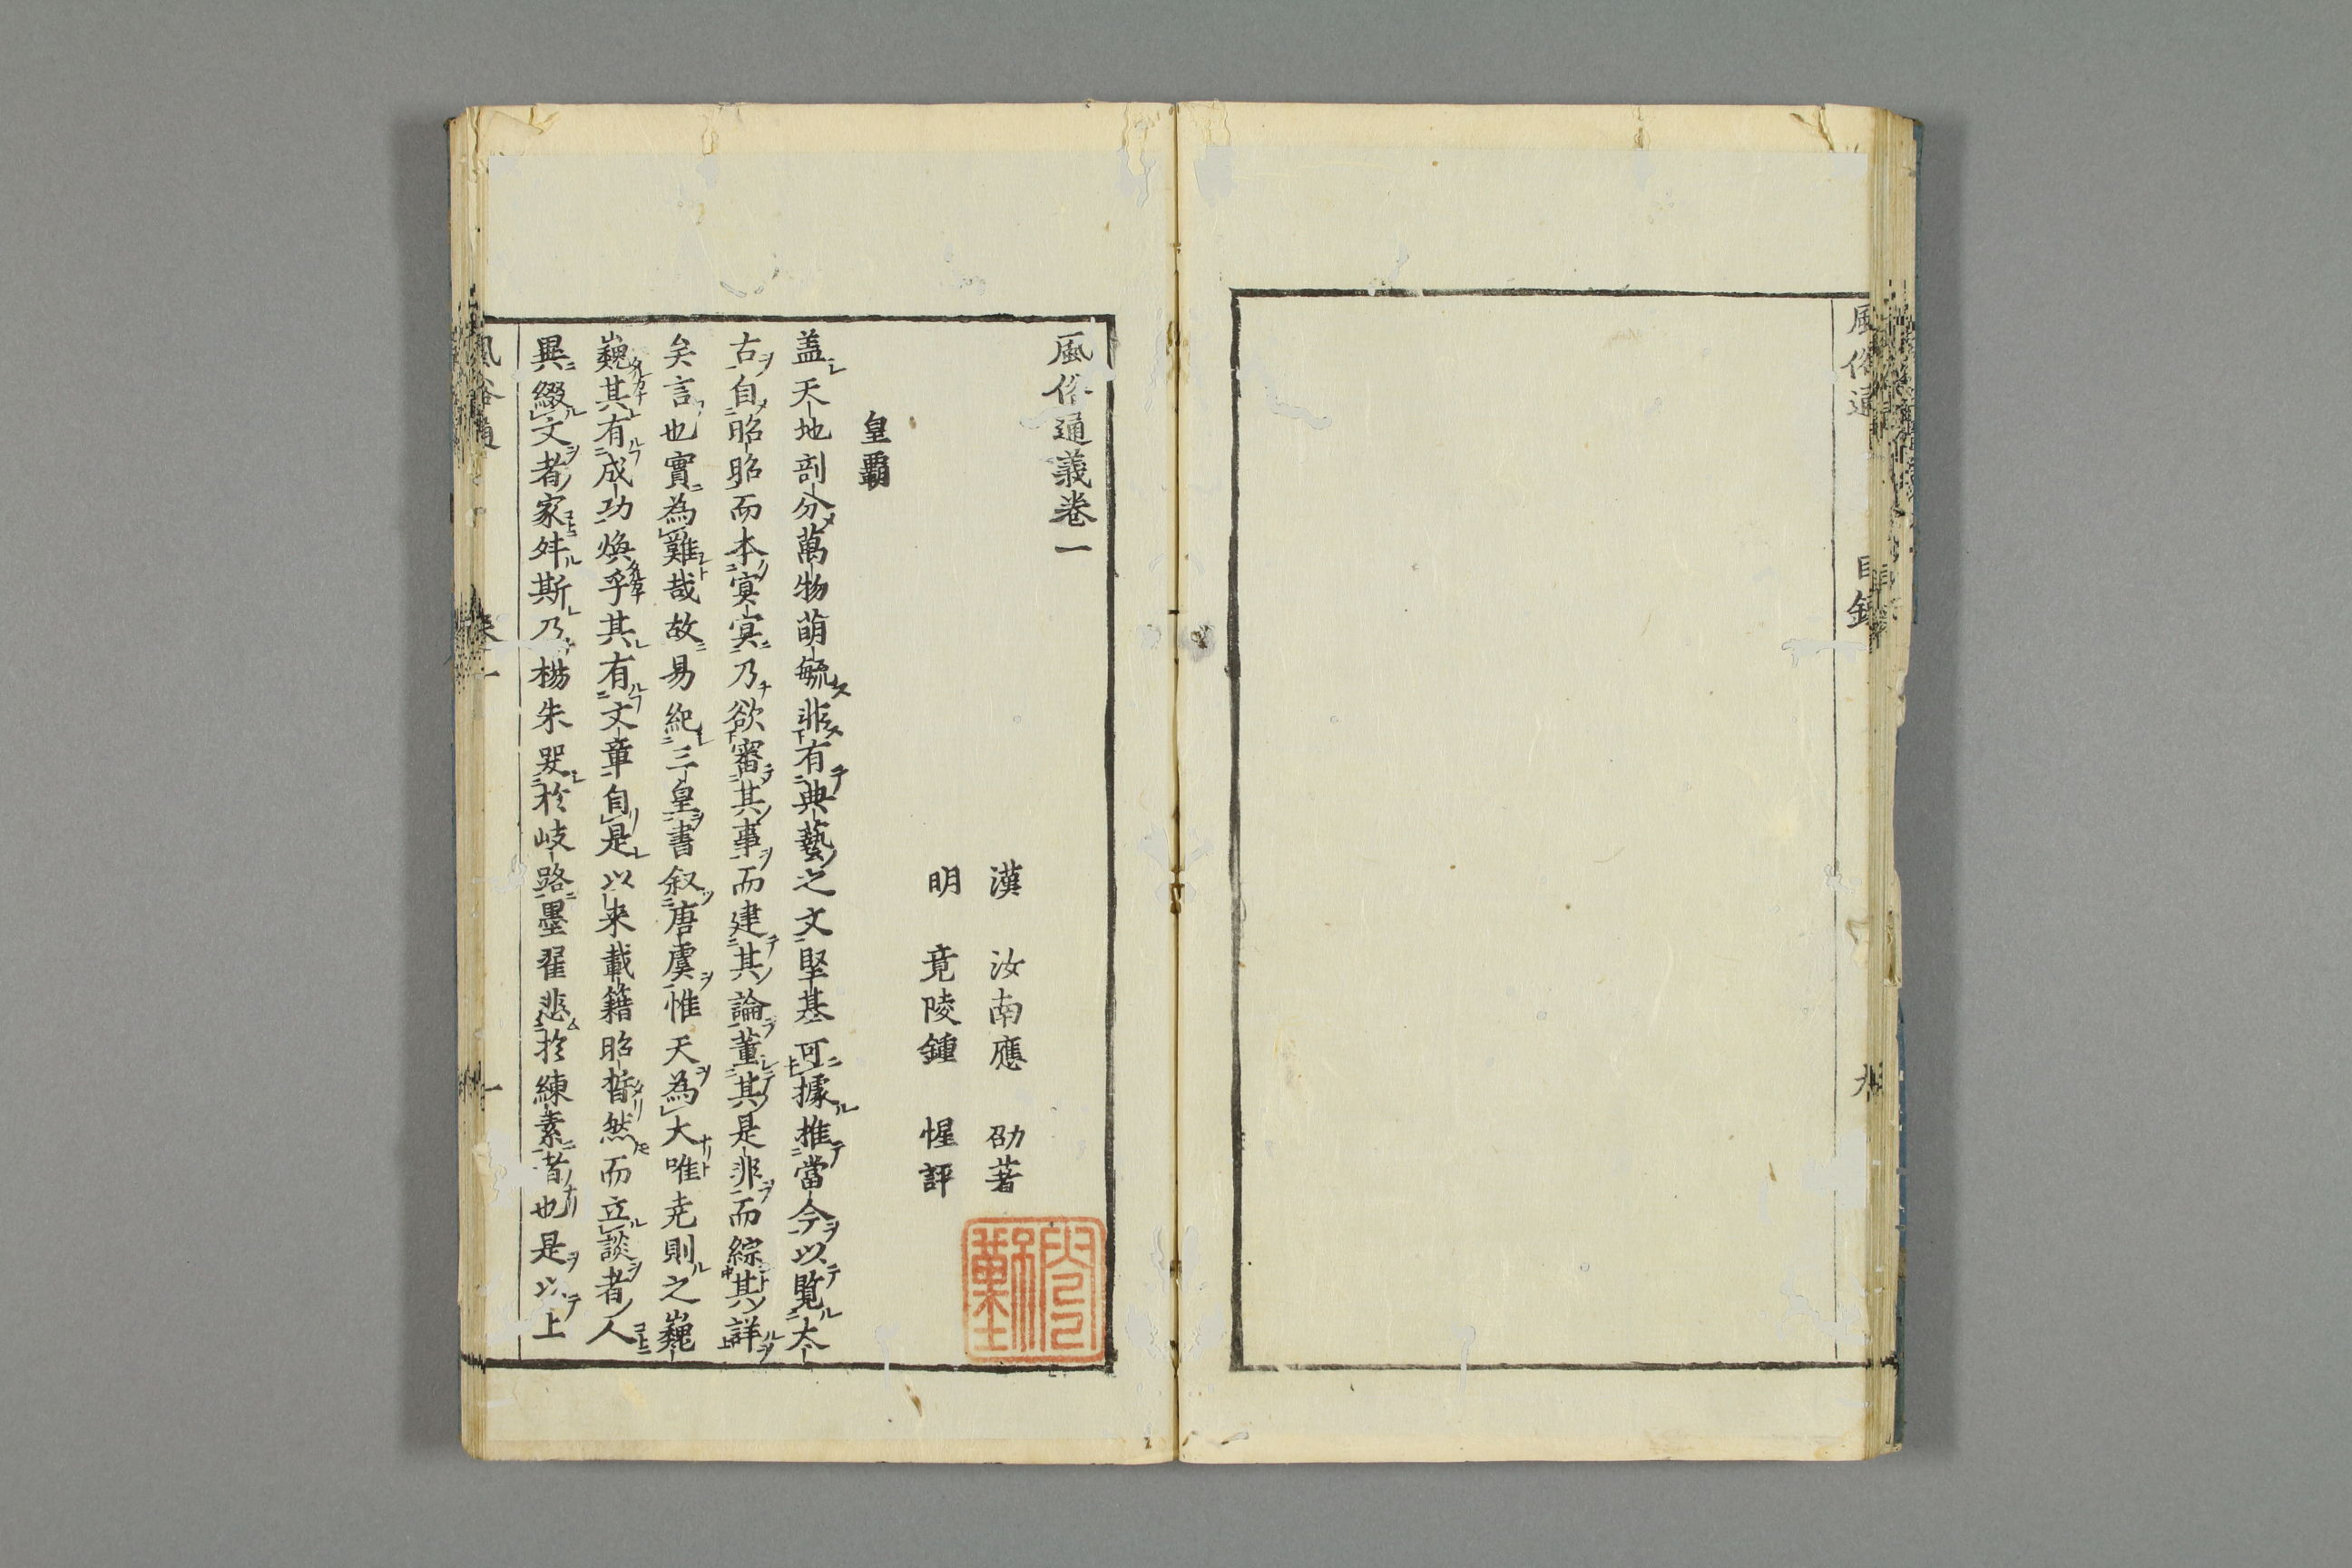 風俗通
目錄
九
風俗通義卷一
漢 汝南應 劭著
明 竟陵鍾 惺評
皇霸
蓋天地剖分萬物萌毓非有典藝之文堅基可據推當今以覽太
古自昭昭而本冥冥乃欲審其事而建其論董其是非而綜其詳
矣言也實為難哉故易紀三皇書叙唐虞惟天為大唯堯則之巍
巍其有成功煥乎其有文章自是以来載籍昭晢然而立談者人
異綴文者家舛斯乃楊朱哭於岐路墨翟悲於練素者也是以上